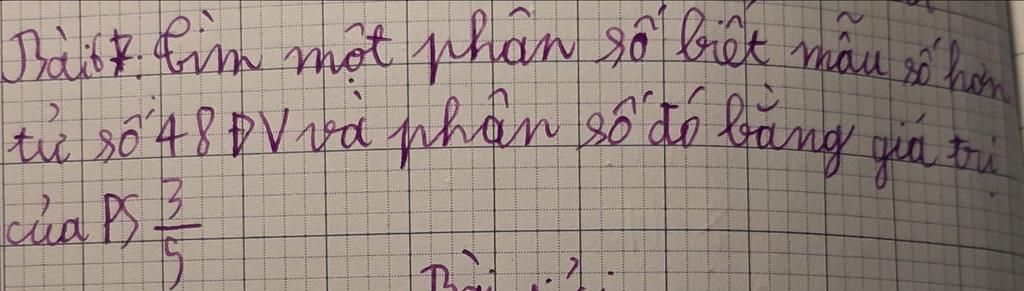 Bài 7: Tìm một phân số biết mẫu số hơn
tử số 48 ĐV và phân số đó bằng giá trị
của PS 3/5
Bài